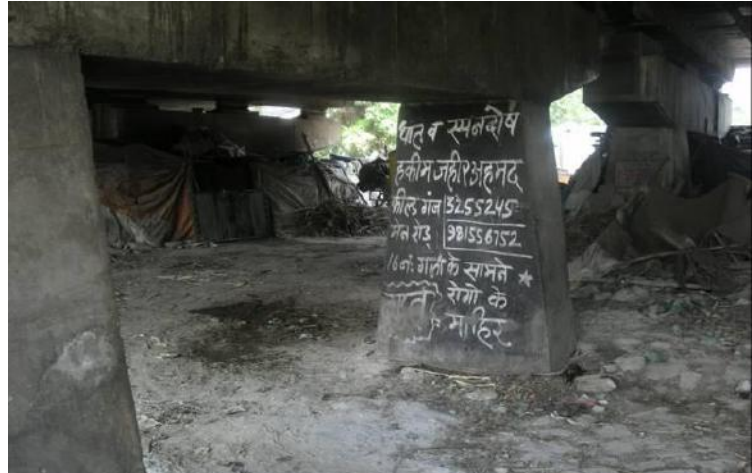 धात व स्पनदोष
हकीम जहीर अहमद
फील्ड गंज 3255245
मेन रोड़ 981556752
16 नं. गली के सामने
धात रोगो के
माहिर